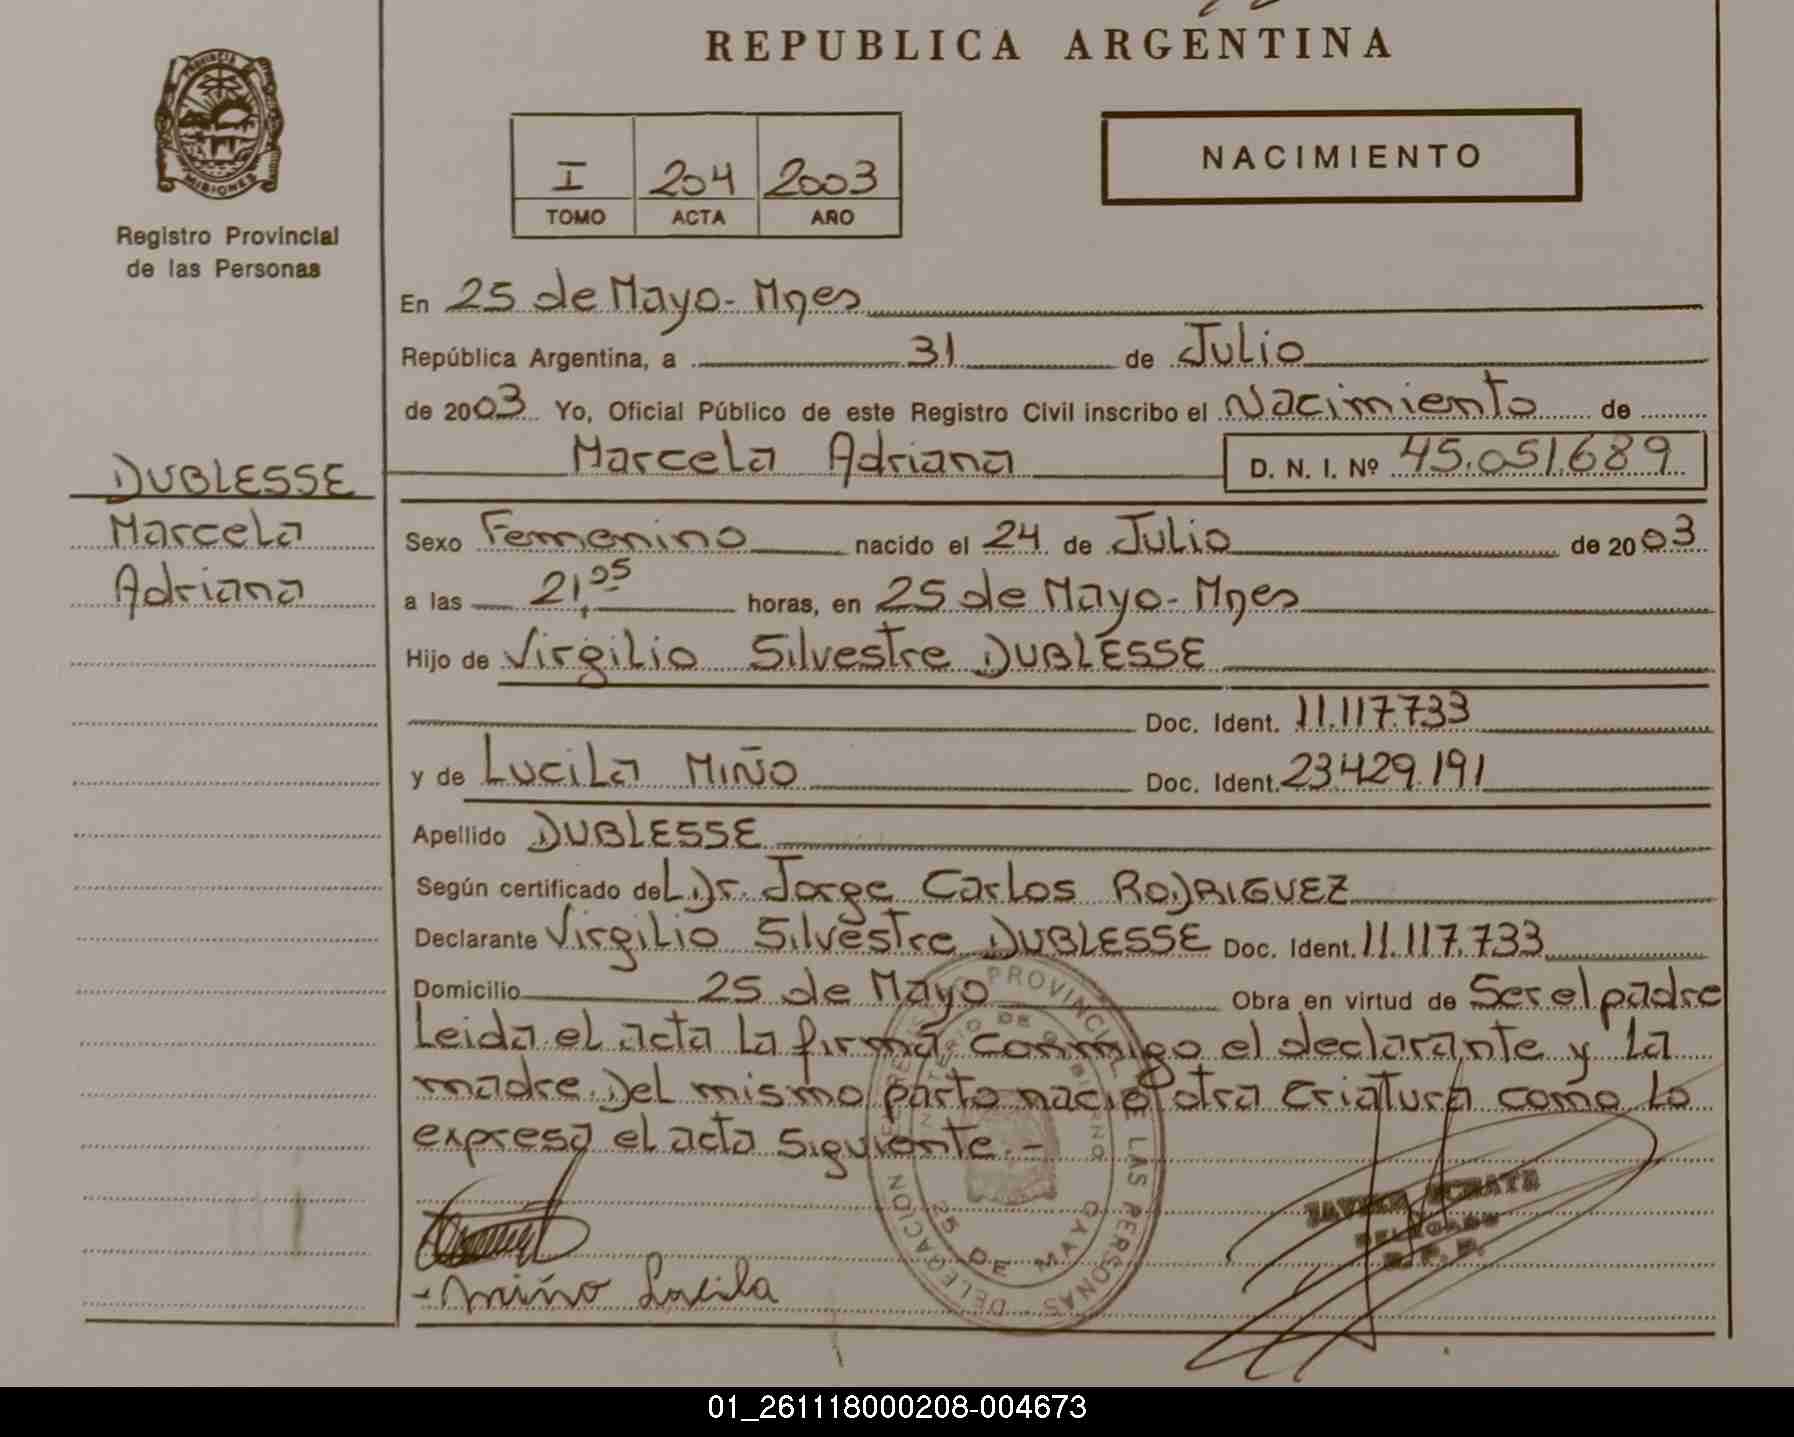 REPUBLICA ARGENTINA
PROVINCIA
MISIONES
Registro Provincial
de las Personas
I 204 2003
TOMO ACTA AÑO
NACIMIENTO
En 25 de Mayo - Mnes
República Argentina, a 31 de Julio
de 2003 Yo, Oficial Público de este Registro Civil inscribo el Nacimiento de
Marcela Adriana D. N. I. Nº 45.051.689
DUBLESSE
Marcela
Adriana
Sexo Femenino nacido el 24 de Julio de 2003
a las 21,05 horas, en 25 de Mayo - Mnes
Hijo de Virgilio Silvestre DUBLESSE
Doc. Ident. 11.117.733
y de Lucila Miño Doc. Ident. 23.429.191
Apellido DUBLESSE
Según certificado del Dr. Jorge Carlos RODRIGUEZ
Declarante Virgilio Silvestre DUBLESSE Doc. Ident. 11.117.733
Domicilio 25 de Mayo Obra en virtud de Ser el padre
Leida el acta la firma conmigo el declarante y la
madre. Del mismo parto nació otra criatura como lo
expresa el acta siguiente.-
PROVINCIAL DE LAS PERSONAS
DELEGACION
25 DE MAYO
JAVIER
DELEGADO
R. P. P.
- Miño Lucila
01_261118000208-004673